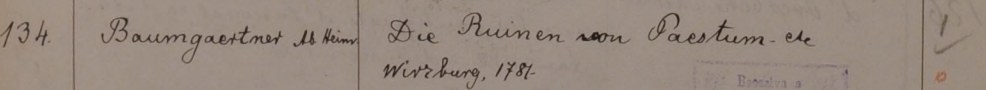 134. Baumgaertner Ab Heinr. Die Ruinen von Paestum - etc 1
Wirzburg, 1781. 0